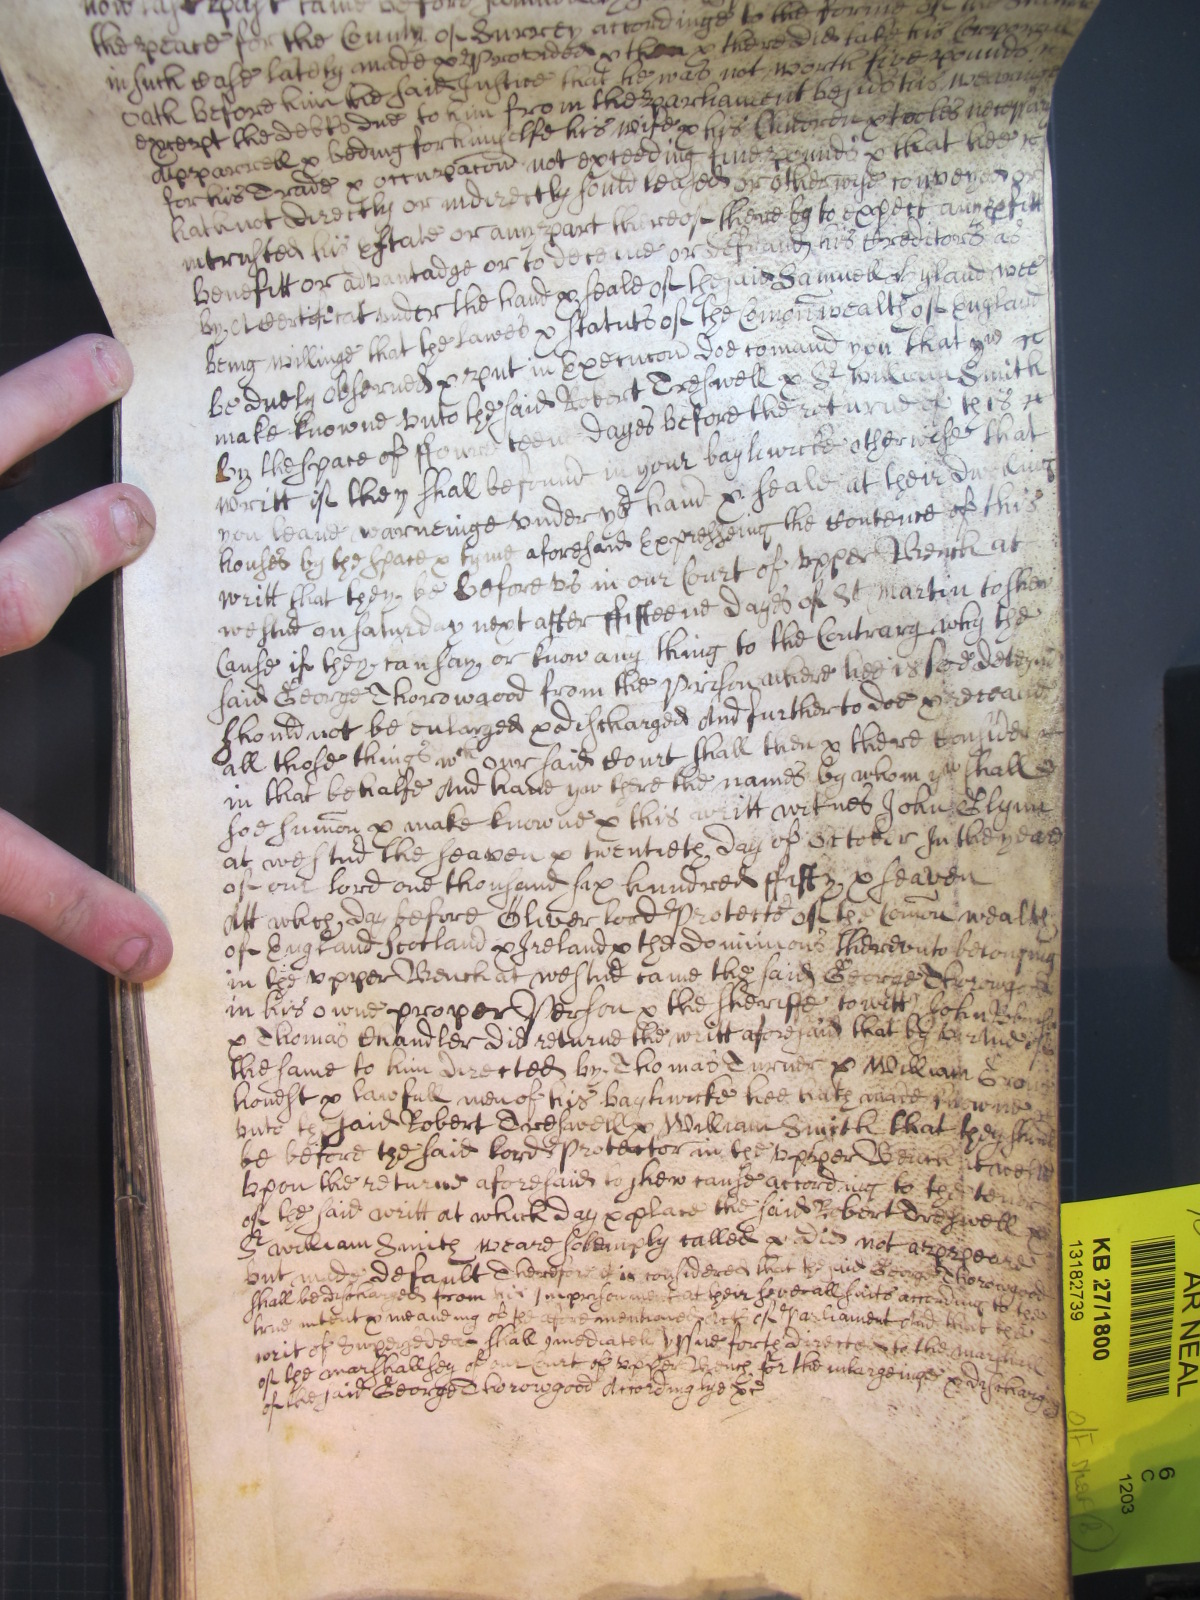 now last past came before Samuell
the peace for the County of Surrey accordinge to the forme of the Statute
in such case lately made & Provided & then & there did take his Corporall
oath before him the said Justice that he was not worth five pounds
except the debts due to him from the parliament besides his wearinge
Apparrell & beding for himselfe his wife & his Children & tooles necessary
for his Trade & occupacon not exceeding five pounds & that hee
hath not directly or indirectly sould leased or otherwise conveyed or
intrusted his Estate or any part thereof thereby to expect any profitt
benefitt or advantadge or to deceive or defraud his Creditors as
by a Certificat under the hand & seale of the said Samuell Hyland wee
being willinge that the lawes & statuts of the Comonwealth of England
be duely observed & put in Execucon doe comand you that yow
make knowne unto the said Robert Treswell & Sr William Smith
by the space of ffowre teene dayes before the returne of this
writt if they shall be found in your bayliwicke otherwise that
you leave warneinge under yor hand & seale at their dwelling
houses by the space & tyme aforesaid Expressing the Contence of this
writt that they be before us in our Court of upper Bench at
westmr on saturday next after ffifteene dayes of St Martin to shew
Cause if they can say or know any thing to the Contrary why the
said George Thorowgood from the Prison where hee is soe deteyned
should not be enlarged & discharged And further to doe & receave
all those things wch our said Court shall then & there Consider
in that behalfe And have yow there the names by whom yow shall
soe sumon & make knowne & this writt witnes John Glynn
at westmr the seaven & twentieth day of October In the yeare
of our lord one thousand six hundred ffifty & seaven
Att which day before Oliver lord Protector of the Comon wealth
of England Scotland & Ireland & the dominions thereunto belonging
in the upper Bench at westmr came the said George Thorowgood
in his owne proper Person & the sheriffe to witt John
& Thomas Chandler did returne the writt aforesaid that by vertue of
the same to him directed by Thomas Turner & William
honest & lawfull men of his bayliwicke hee hath made knowne
unto the said Robert Treswell & William Smith that they should
be before the said lord Protector in the upper Bench at westmr
upon the returne aforesaid to shew cause according to the tenor
of the said writt at which day & place the said Robert Treswell &
Sr William Smith weare solemply called & did not appeare
but made default Therefore it is considered that the said George Thorowgood
shall be discharged from his Imprisonment at their severall suits according to the
true intent & meaning of the aforementioned Acts of Parliament And that the
writ of Supersedeas shall imediately issue forth directed to the marshall
of the marshallsey of our Court of upper Bench for the inlargeinge & discharge
of the said George Thorowgood Accordingly &c
AR NEAL
KB 27/1800
13182739
6
C
1203